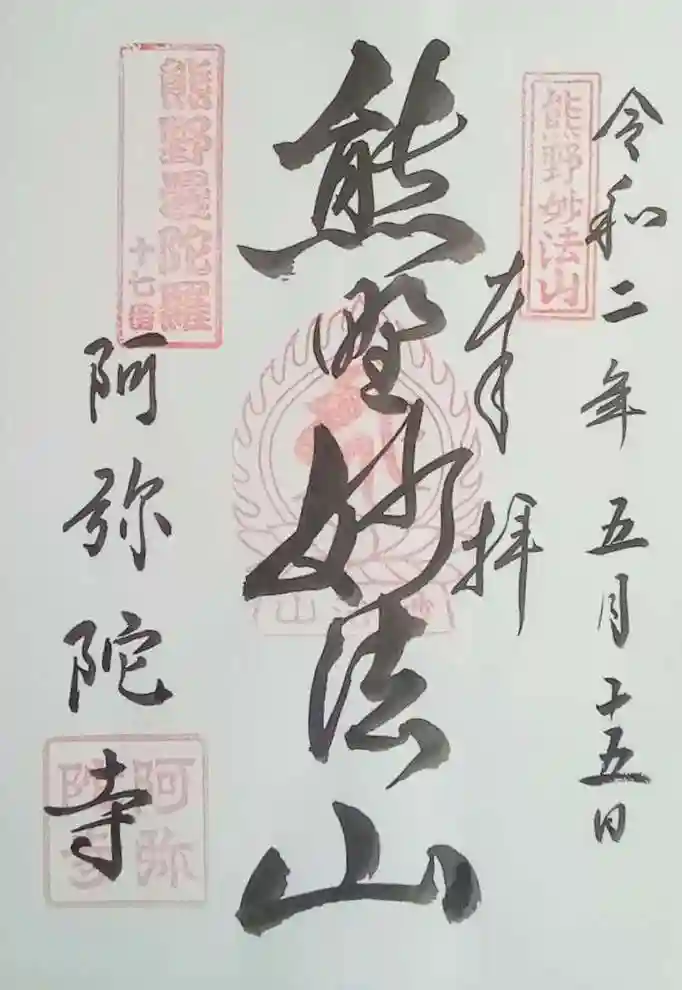 令和二年五月十五日
熊野妙法山
奉拝
熊野妙法山
妙法山
熊野曼陀羅
十七番
阿弥陀寺
阿弥
陀寺